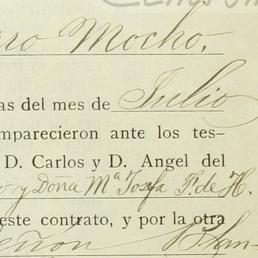 rro Mocho,
as del mes de Julio
mparecieron ante los tes-
D. Carlos y D. Angel del
y Doña Mª Josefa F. de H.
este contrato, y por la otra